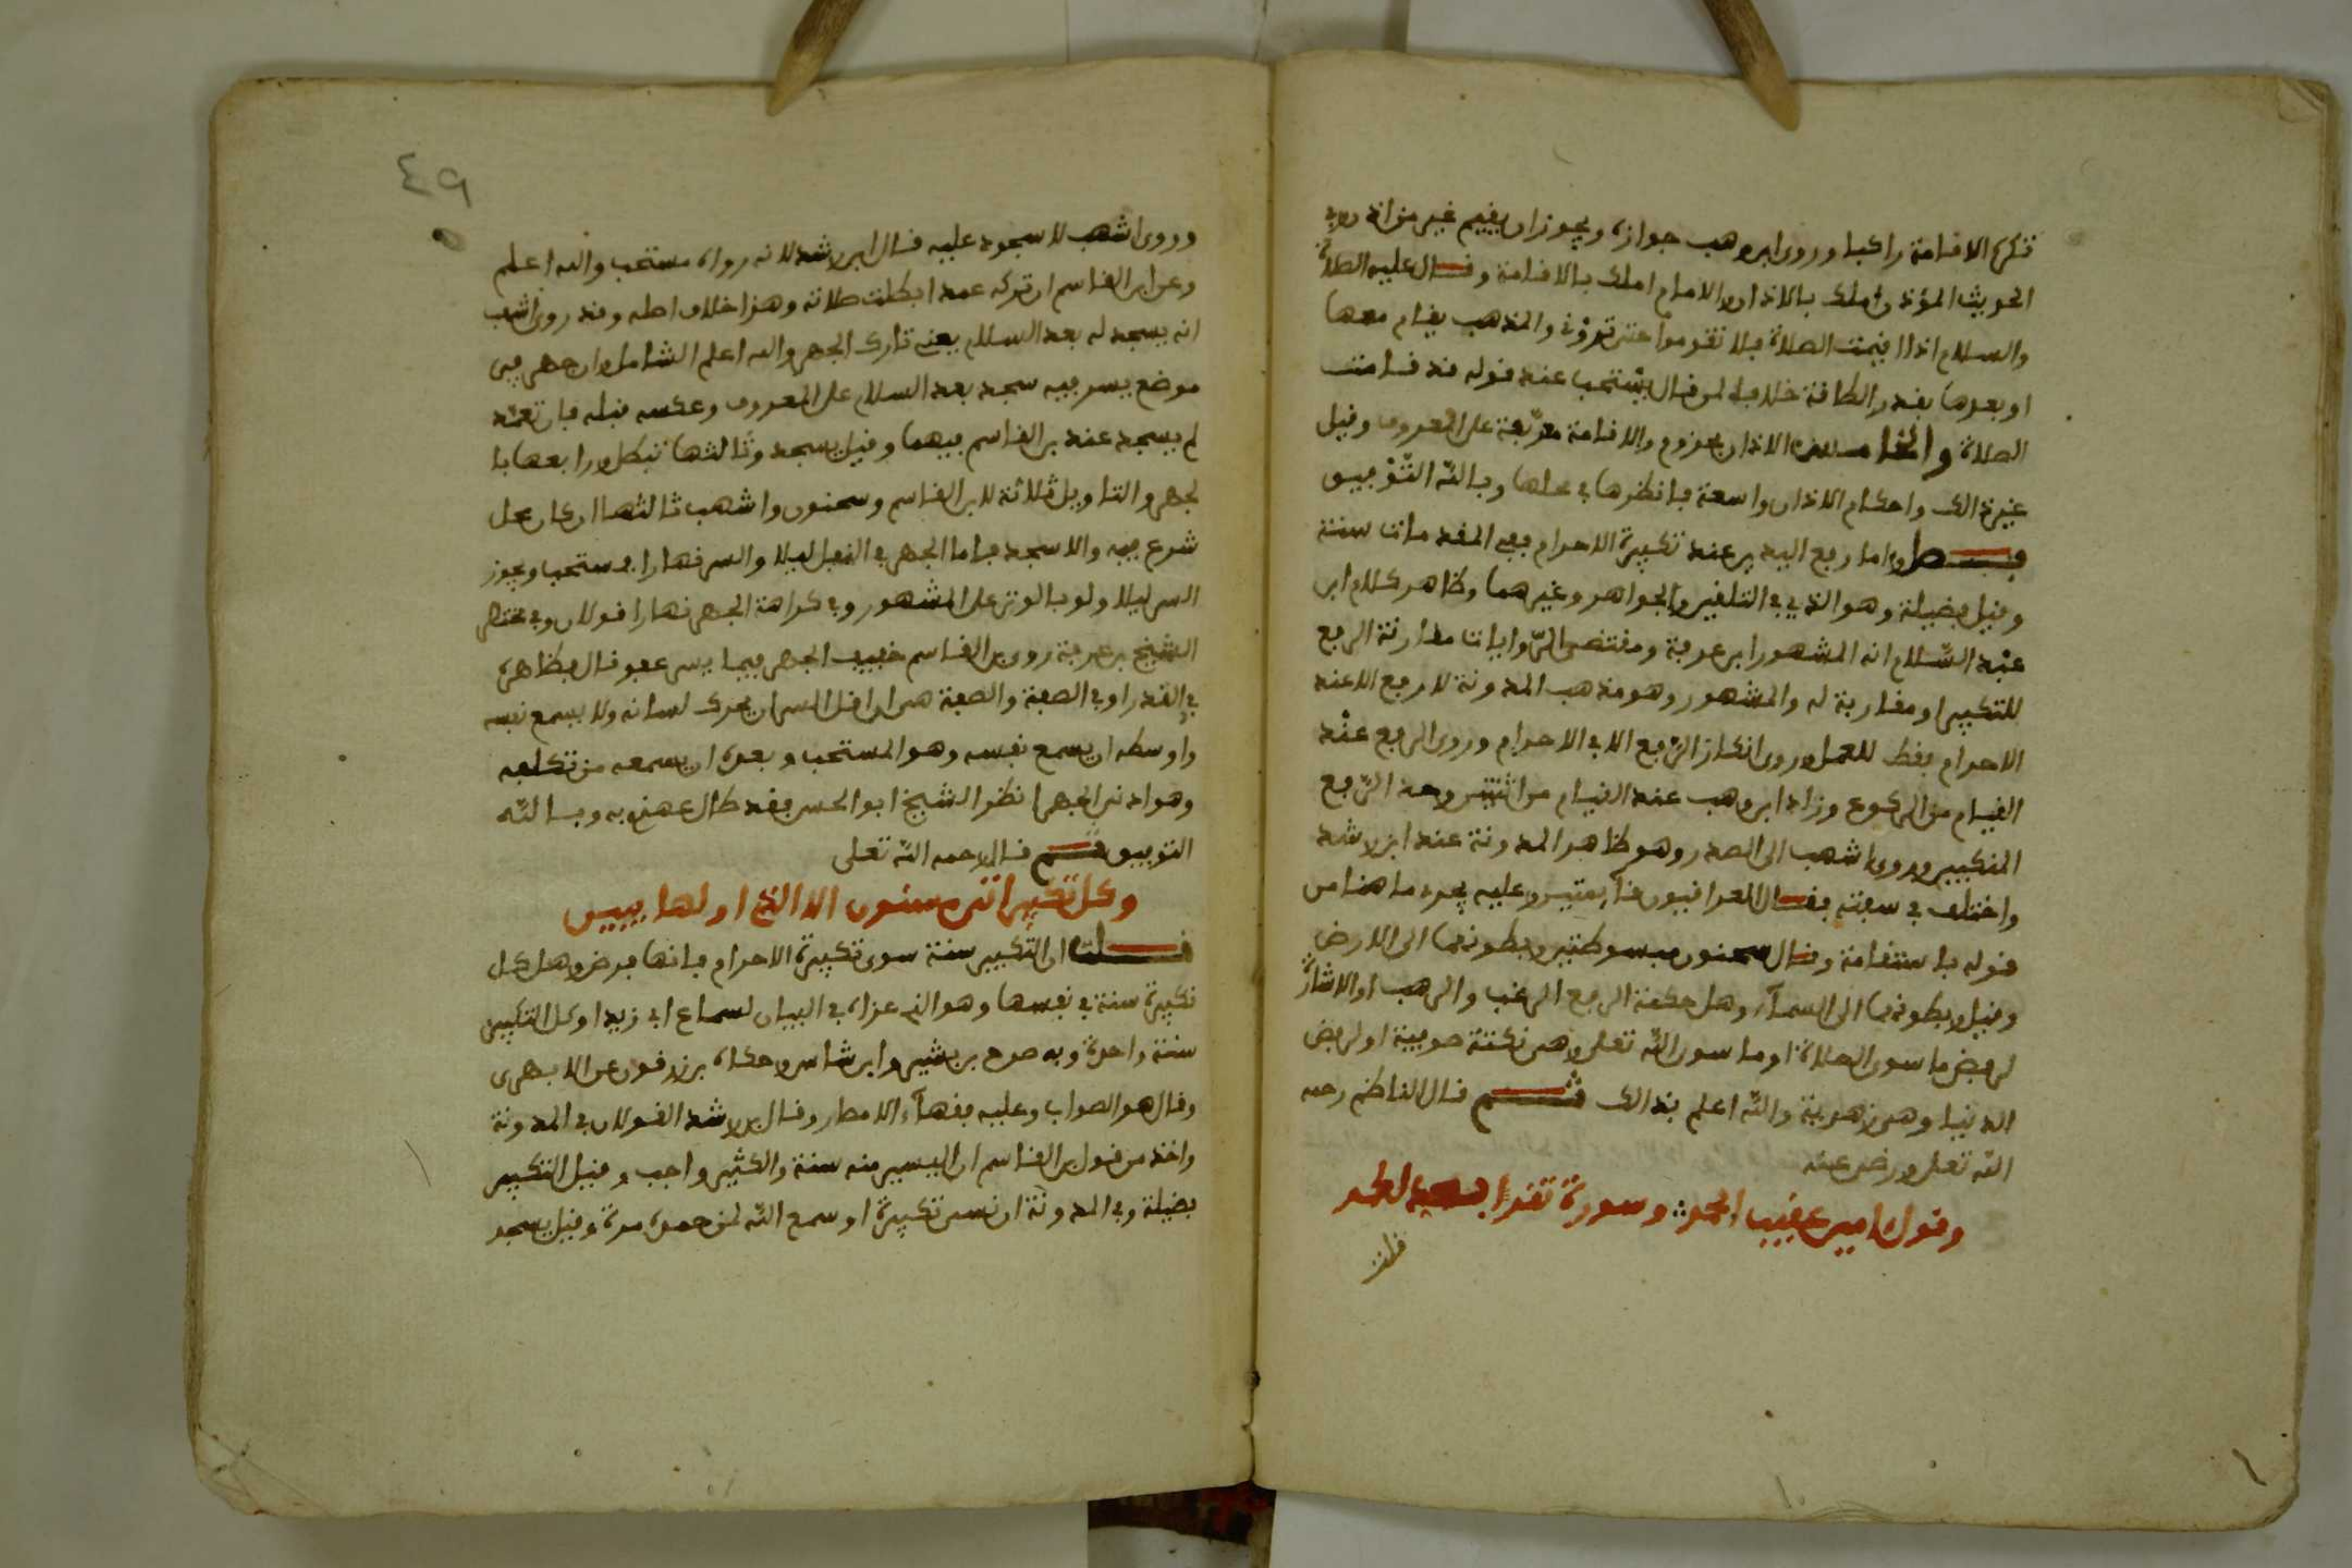 تكره الاقامة راكبا وروى ابن وهب جوازه ويجوز ان يقيم غير من اذن وفي
الحديث المؤذن املك بالاذان والامام املك بالاقامة وقال عليه الصلاة
والسلام اذا اقيمت الصلاة فلا تقوموا حتى تروني والمذهب يقام معها
او بعدها بقدر الطاقة خلافا لمن قال يستحب عند قوله قد قامت
الصلاة والخامسة الاذان مجزوم والاقامة معربة على المعروف وقيل
غير ذالك واحكام الاذان واسعة فانظرها في محلها وبالله التوفيق
فصل واما رفع اليدين عند تكبيرة الاحرام ففي المقدمات سنة
وقيل فضيلة وهو الذي في التلقين والجواهر وغيرهما وظاهر كلام ابن
عبد السلام انه المشهور ابن عرفة ومقتضى الروايات مقارنة الرفع
للتكبير او مقاربة له والمشهور وهو مذهب المدونة لا رفع الا عند
الاحرام فقط للعمل وروى انكار الرفع الا في الاحرام وروى الرفع عند
القيام من الركوع وزاد ابن وهب عند القيام من اثنتين وحد الرفع
المنكبين وروى اشهب الى الصدر وهو ظاهر المدونة عند ابن رشد
واختلف في صفته فقال العراقيون قائمتين وعليه يجري ما هنا من
قوله باستقامة وقال سحنون مبسوطتين وبطونهما الى الارض
وقيل وبطونهما الى السماء وهل حكمة الرفع الرغب والرهب او الاشارة
لرفض ما سوى الصلاة او ما سوى الله تعلى وهي نكتة صوفية او لرفض
الدنيا وهي زهدية والله اعلم بذالك ثم قال الناظم رحمه
الله تعلى ورضي عنه
وقول امين عقيب الحمد وسورة تقرا بعيد الحمد
قلت
٤٩
وروى اشهب لا سجود عليه قال ابن رشد لانه رواه مستحب والله اعلم
وعن ابن القاسم ان تركه عمدا بطلت صلاته وهذا خلاف اصله وقد روى اشهب
انه يسجد له بعد السلام يعني تارك الجهر والله اعلم الشامل وان جهر في
موضع يسر فيه سجد بعد السلام على المعروف وعكسه قبله فان تعمد
لم يسجد عند بن القاسم فيهما وقيل يسجد وثالثها تبطل ورابعها با
لجهر والتاويل ثلاثة لابن القاسم وسحنون واشهب ثالثها ان كان محل
شرع فيه والا سجد فاما الجهر في النفل ليلا والسر نهارا فمستحب ويجوز
السر ليلا ولو بالوتر على المشهور وفي كراهة الجهر نهارا قولان وفي مختصر
الشيخ بن عرفة روى بن القاسم خفيف الجهر فيما يسر عفو قال فظاهره
في القدر او في الصفة والصفة هي ان اقل السر ان يحرك لسانه ولا يسمع نفسه
واوسطه ان يسمع نفسه وهو المستحب وبعده ان يسمعه من تكلفه
وهو ادنى الجهر انظر الشيخ ابو الحسن فقد طال عهدي به وبالله
التوفيق ثم قال رحمه الله تعلى
وكل تكبير اتى مسنون الا الذي اولها يبين
قلت ان التكبير سنة سوى تكبيرة الاحرام فانها فرض وهل كل
تكبيرة سنة في نفسها وهو الذي عزاه في البيان لسماع ابي زيد او كل التكبير
سنة واحدة وبه صرح بن بشير وابن شاس وحكاه بن زرقون عن الابهري
وقال هو الصواب وعليه فقهاء الامصار وقال بن رشد القولان في المدونة
واخذ من قول بن القاسم ان اليسير منه سنة والكثير واجب وقيل التكبير
فضيلة وفي المدونة ان نسي تكبيرة او سمع الله لمن حمده مرة وقيل يسجد